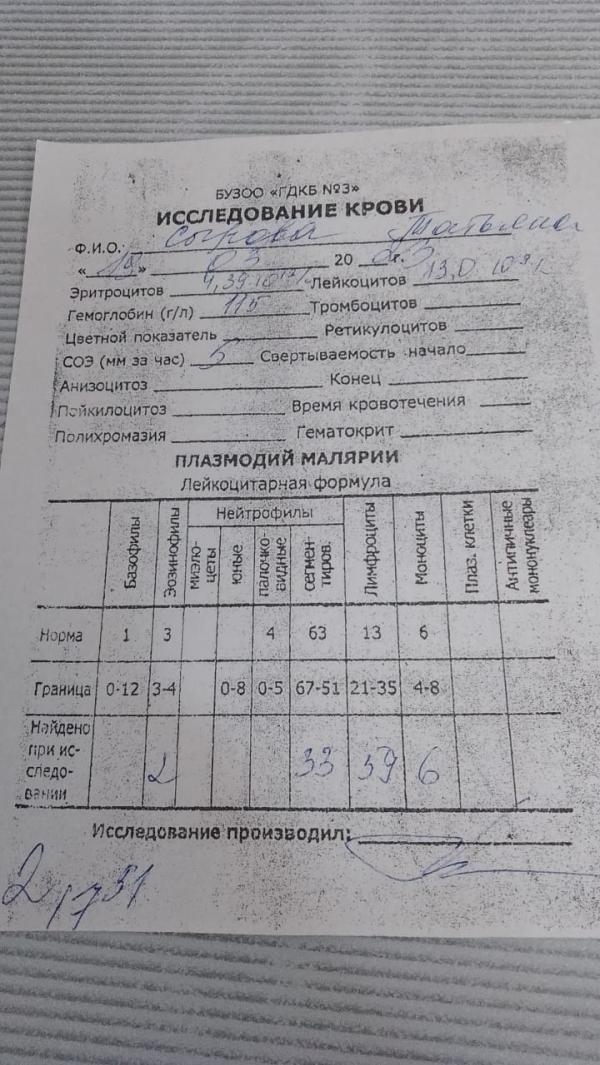 БУЗОО «ГДКБ №3»
ИССЛЕДОВАНИЕ КРОВИ
Ф.И.О. Татьяна
«19» 03 20 г.
Эритроцитов 4,39 10¹²/ Лейкоцитов 13,0 10⁹/
Гемоглобин (г/л) 115 Тромбоцитов
Цветной показатель Ретикулоцитов
СОЭ (мм за час) 5 Свертываемость начало
Анизоцитоз Конец
Пойкилоцитоз Время кровотечения
Полихромазия Гематокрит
ПЛАЗМОДИЙ МАЛЯРИИ
Лейкоцитарная формула
Базофилы Эозинофилы Нейтрофилы Лимфроциты Моноциты Плаз. клетки Антипичные мононуклеары
миэлоцеты юные палочковидные сегментиров.
Норма 1 3 4 63 13 6
Граница 0-12 3-4 0-8 0-5 67-51 21-35 4-8
Найдено при исследовании 2 33 59 6
Исследование производил: